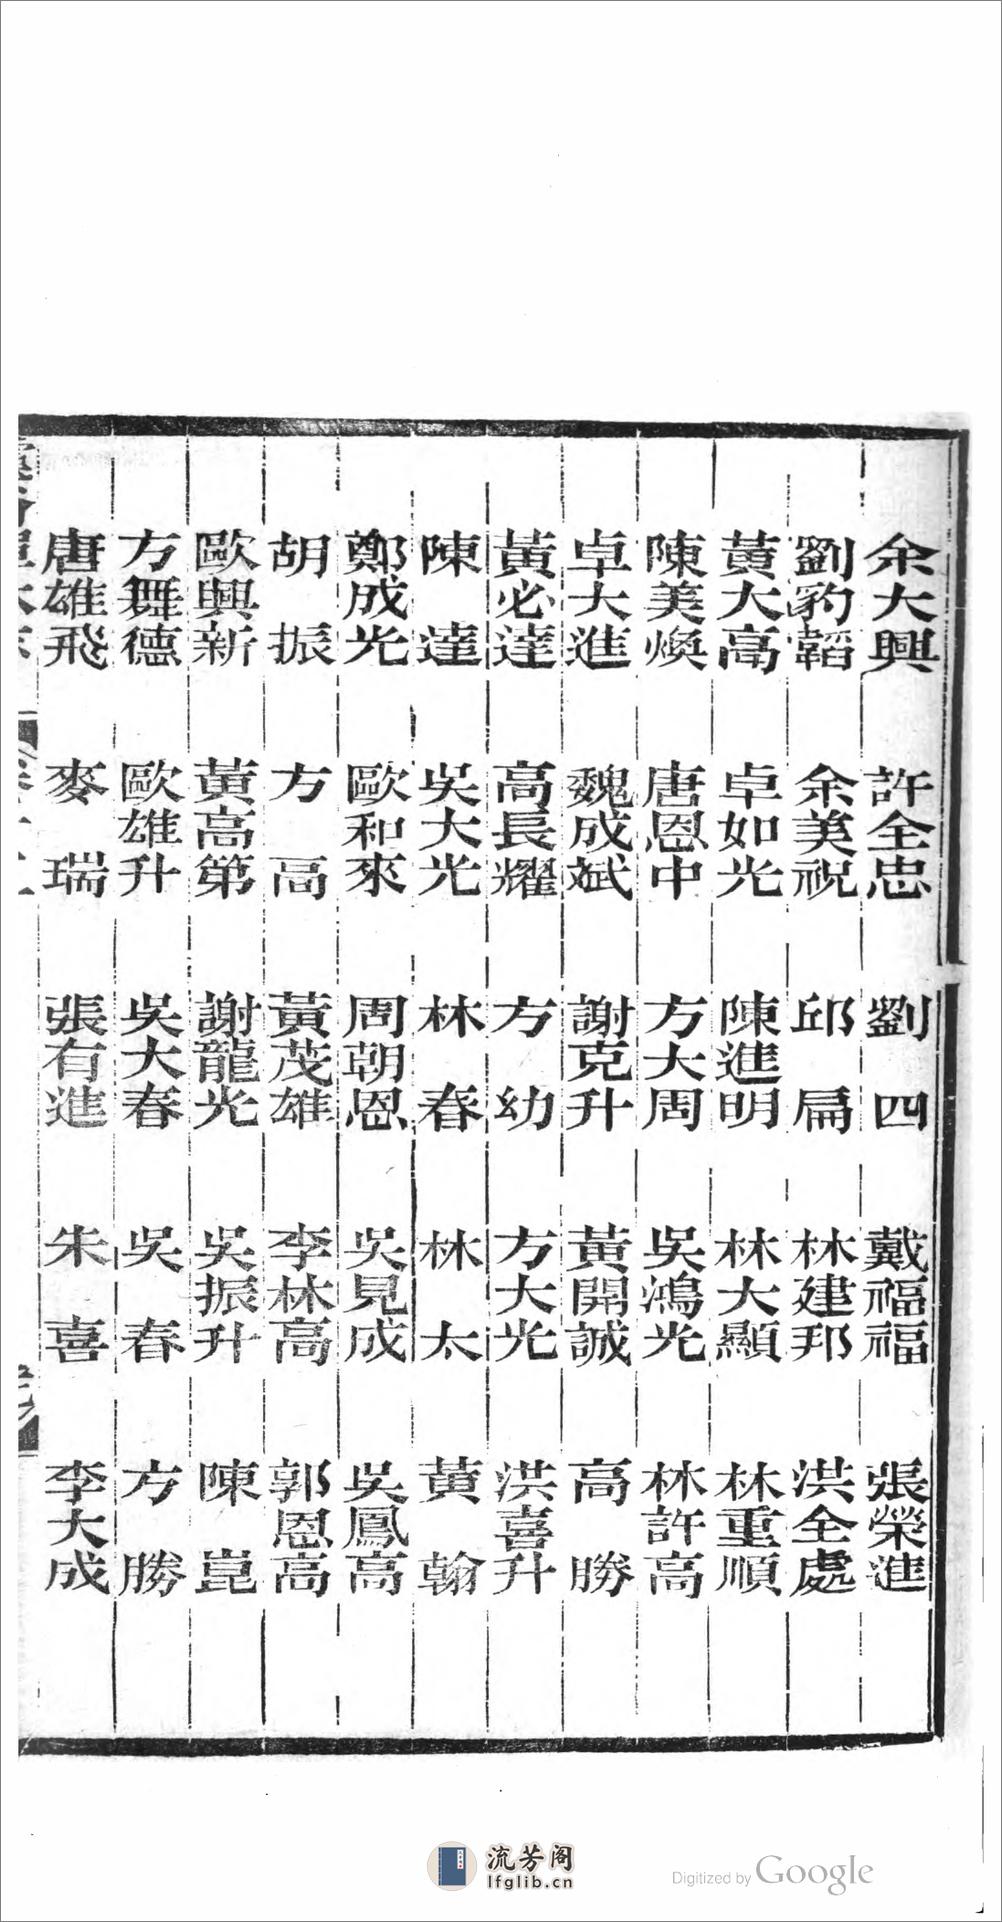 余大興　許全忠　劉四　戴福福　張榮進
劉豹韜　余美祝　邱扁　林建邦　洪全處
黃大高　卓如光　陳進明　林大顯　林重順
陳美煥　唐恩中　方大周　吳鴻光　林許高
卓大進　魏成斌　謝克升　黃開誠　高勝
黃必達　高長耀　方幼　方大光　洪喜升
陳達　吳大光　林春　林太　黃翰
鄭成光　歐和來　周朝恩　吳見成　吳鳳高
胡振　方高　黃茂雄　李林高　郭恩高
歐興新　黃高第　謝龍光　吳振升　陳崑
方舞德　歐雄升　吳大春　吳春　方勝
唐雄飛　麥瑞　張有進　朱喜　李大成
流芳阁
lfglib.cn
Digitized by Google